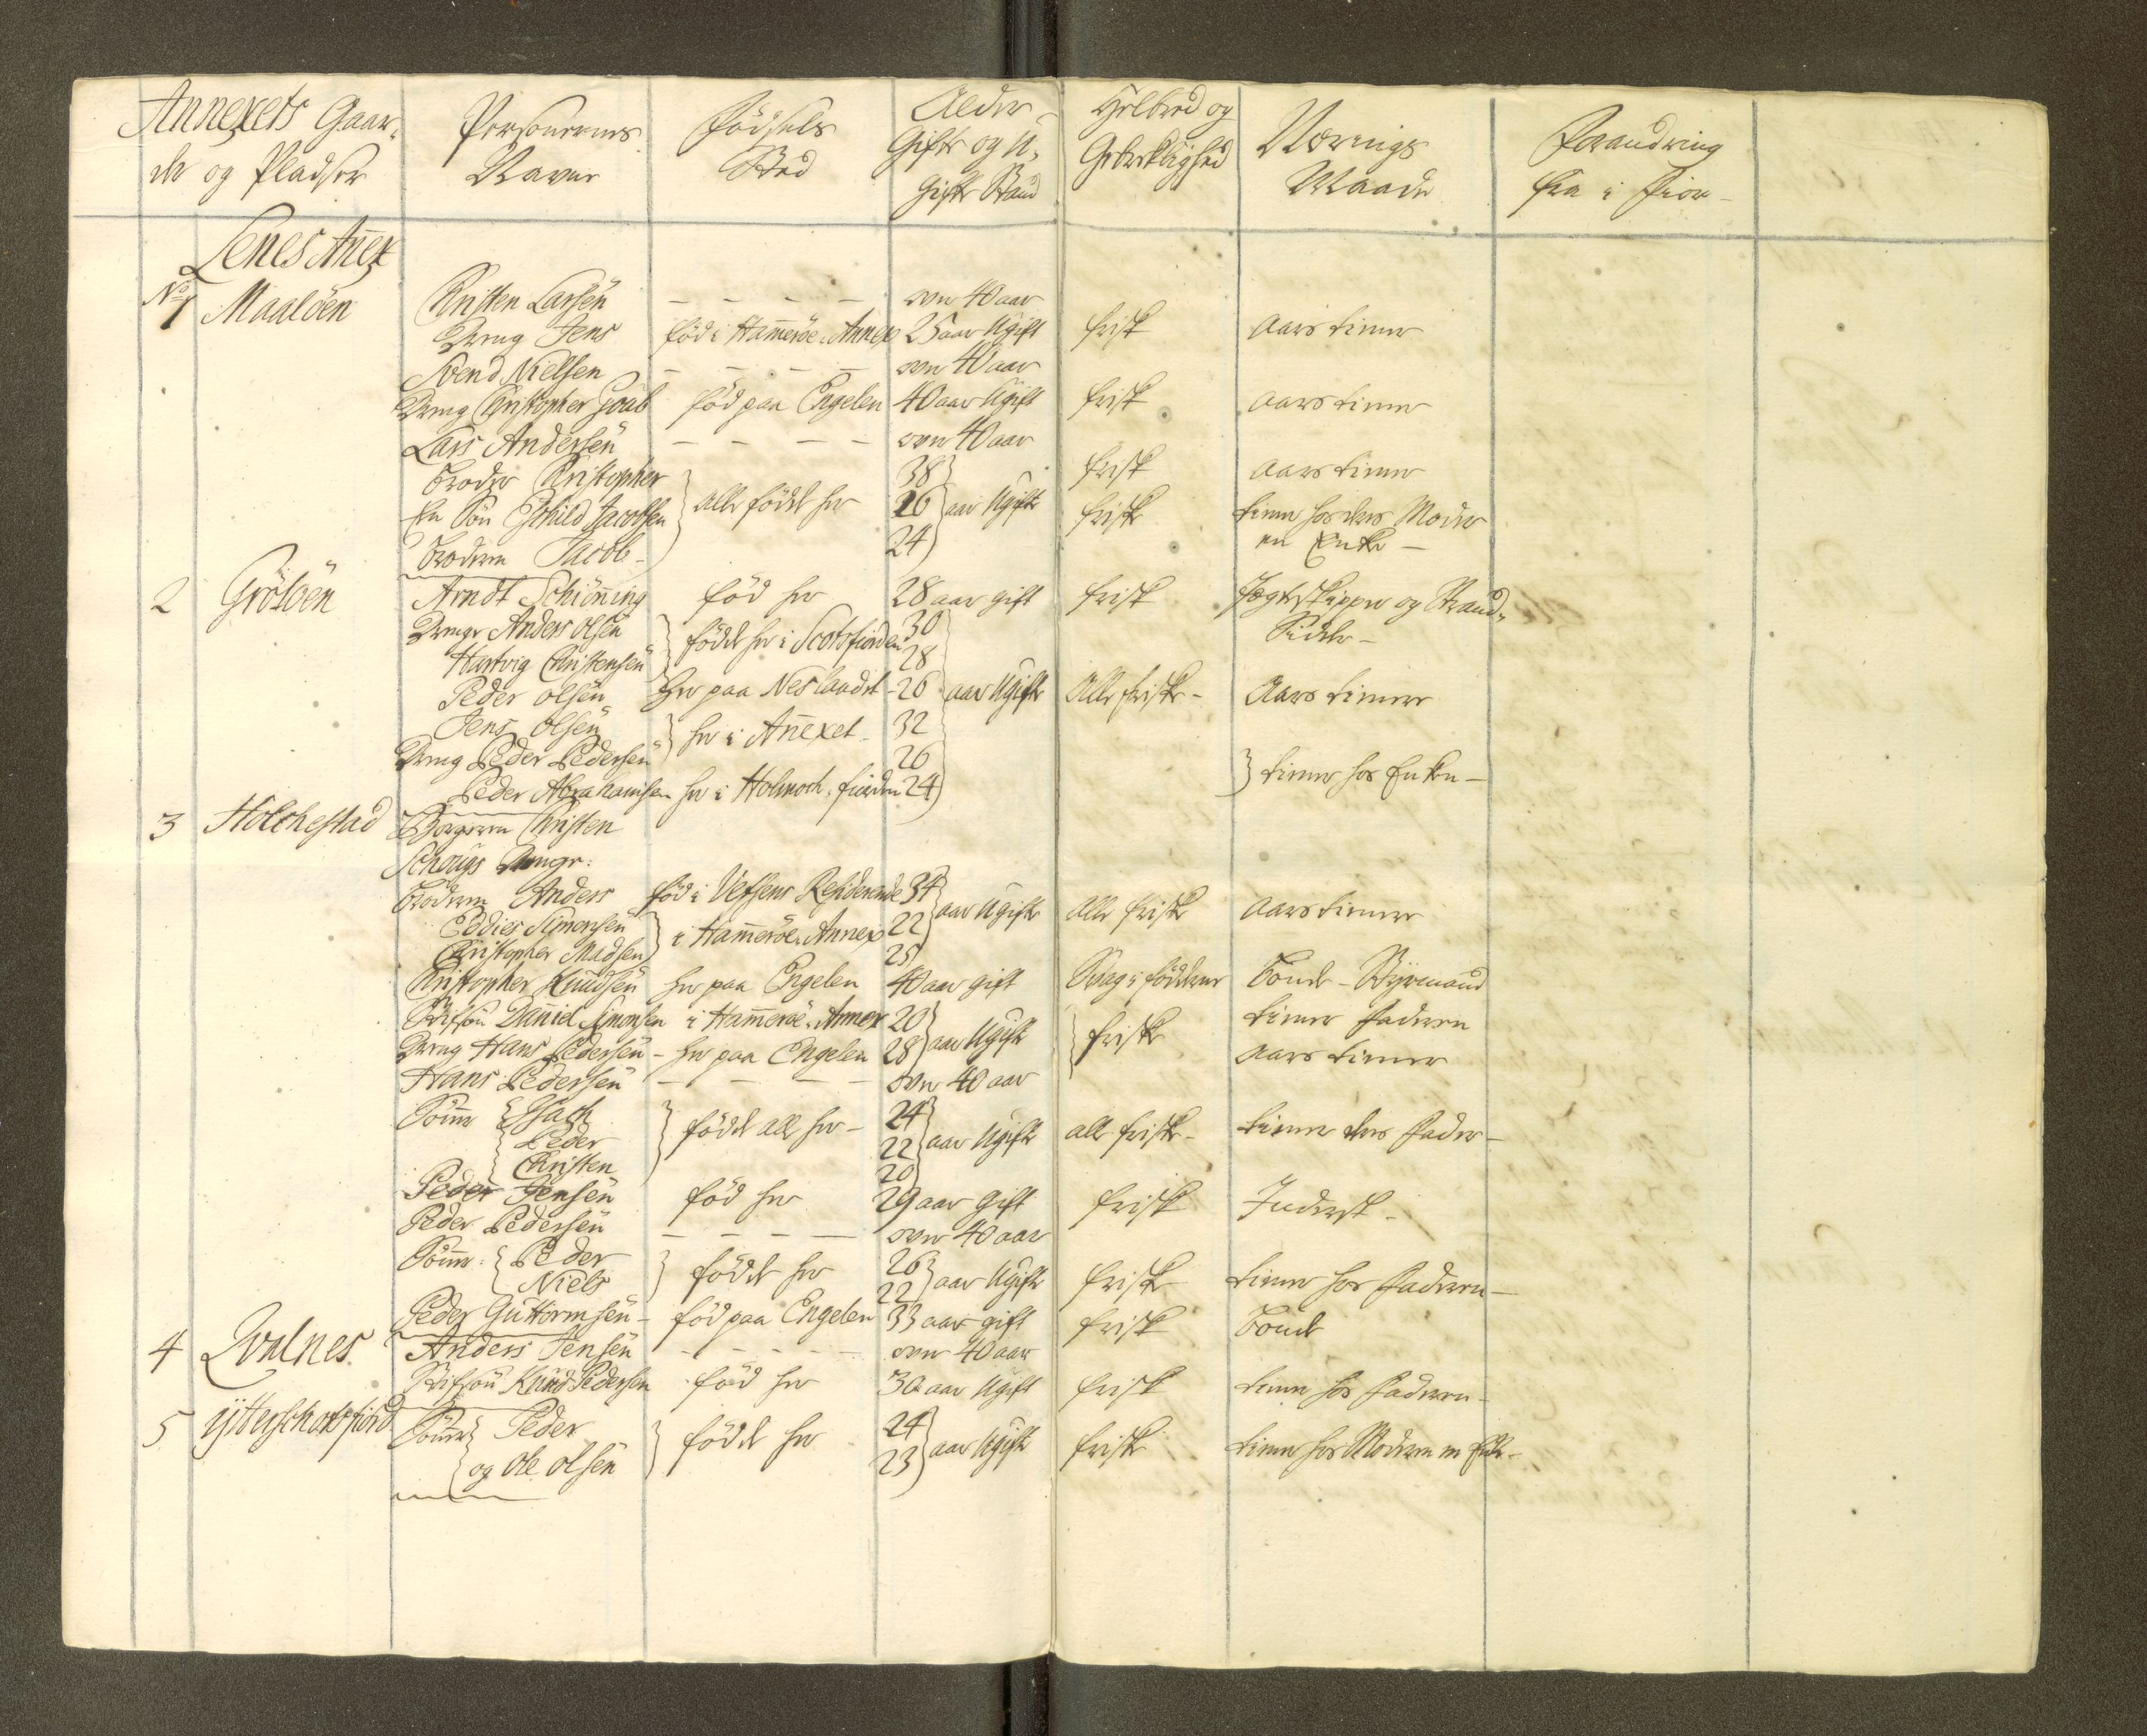 Annexets Gaar-
de og Pladser
Personernes
Navne
Fødsels
Stæd
Alder
Gifte og U-
gifte Stand
Helbred og
Gebreklighed
Nærings
Maade
Forandring
fra i Fior
Lenes Añex
No 1 Maalöen Christen Larsen - - - - over 40 aar
Dreng Jens fød i Hamerøe Annex 25 aar Ugift frisk aars tiener
Svend Nielsen - - - - over 40 aar
Dreng Christopher Joab fød paa Engelen 40 aar Ugift frisk aars tiener
Lars Andersen - - - - over 40 aar
broder Christopher 38 frisk aars tiener
En Søn Eschild Jacobsen alle fødde her 26 aar Ugifte friske tiener hos deres Moder
Broderen Jacob - 24 en Enke -
2 Grötöen Arndt Schiöning fød her 28 aar gift frisk Jægteskipper og Strand-
Sider -
Drenge Anders Olsen fødde her i Scotsfiorden 30
Hartvig Christensen 28
Peder Olsen her paa Neslandet - 26 aar Ugifte Alle friske - Aars tienere
Jens Olsen her i Añexet - 32
Dreng Peder Pedersen 26
Peder Abrahamsen her i Holmoch fiorden 24 tiener hos Enken -
3 Holchestad Borgeren Christen
Schougs Drenge:
Broderen Anders fød i Vefsens Residerende 34
Eddies Simonsen i Hamerøe Annex 22 aar Ugifte Alle friske Aars tienere
Christopher Madsen 25
Christopher Knudsen her paa Engelen 40 aar gift Svag i fødderne Bonde - Styrmand
Stifsøn Daniel Simonsen i Hamerøe Annex 20 tiener Faderen
Dreng Hans Pedersen - her paa Engelen 28 aar Ugifte friske aars tiener
Hans Pedersen - - - - over 40 aar
Søner Isach 24
Peder fødde alle her - 22 aar Ugifte alle friske - tiener deres Fader -
Christen 20
Peder Jensen fød her 29 aar Gift frisk Inderst -
Peder Pedersen - - - - over 40 aar
Søner: Peder 26
Niels fødde her 22 aar Ugifte friske tiener hos Faderen -
Peder Guttormsen - fød paa Engelen 33 aar gift frisk Bonde
4 Qvalnes Anders Jensen - - - - over 40 aar
Stifsøn Knud Pedersen fød her 30 aar Ugift frisk tiener hos Faderen -
5 ÿtterschotsfiord Søner Peder 24
og Ole Olsen fødde her 23 aar Ugifte friske tiener hos Moderen en Enke -